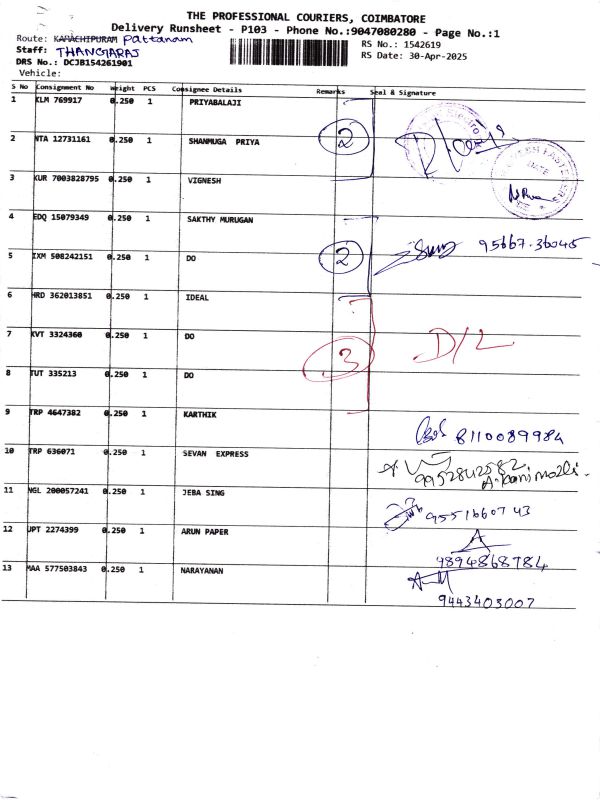 THE PROFESSIONAL COURIERS, COIMBATORE
Delivery Runsheet - P103 - Phone No.:9047080280 - Page No.:1
Route: KARACHIPURAM Pattanam
RS No.: 1542619
Staff: THANGARAJ
RS Date: 30-Apr-2025
DRS No.: DCJB154261901
Vehicle:
S No Consignment No Weight PCS Consignee Details Remarks Seal & Signature
1 KLM 769917 0.250 1 PRIYABALAJI
2 NTA 12731161 0.250 1 SHANMUGA PRIYA 2
3 KUR 7003828795 0.250 1 VIGNESH
4 EDQ 15079349 0.250 1 SAKTHY MURUGAN
5 IXM 508242151 0.250 1 DO 2 95667.36045
6 HRD 362013851 0.250 1 IDEAL
7 KVT 3324360 0.250 1 DO D/L
8 TUT 335213 0.250 1 DO 3
9 TRP 4647382 0.250 1 KARTHIK 8110089984
10 TRP 636071 0.250 1 SEVAN EXPRESS 9952842582
11 NGL 200057241 0.250 1 JEBA SING 9551660743
12 UPT 2274399 0.250 1 ARUN PAPER 9894868784
13 MAA 577503843 0.250 1 NARAYANAN 9443403007